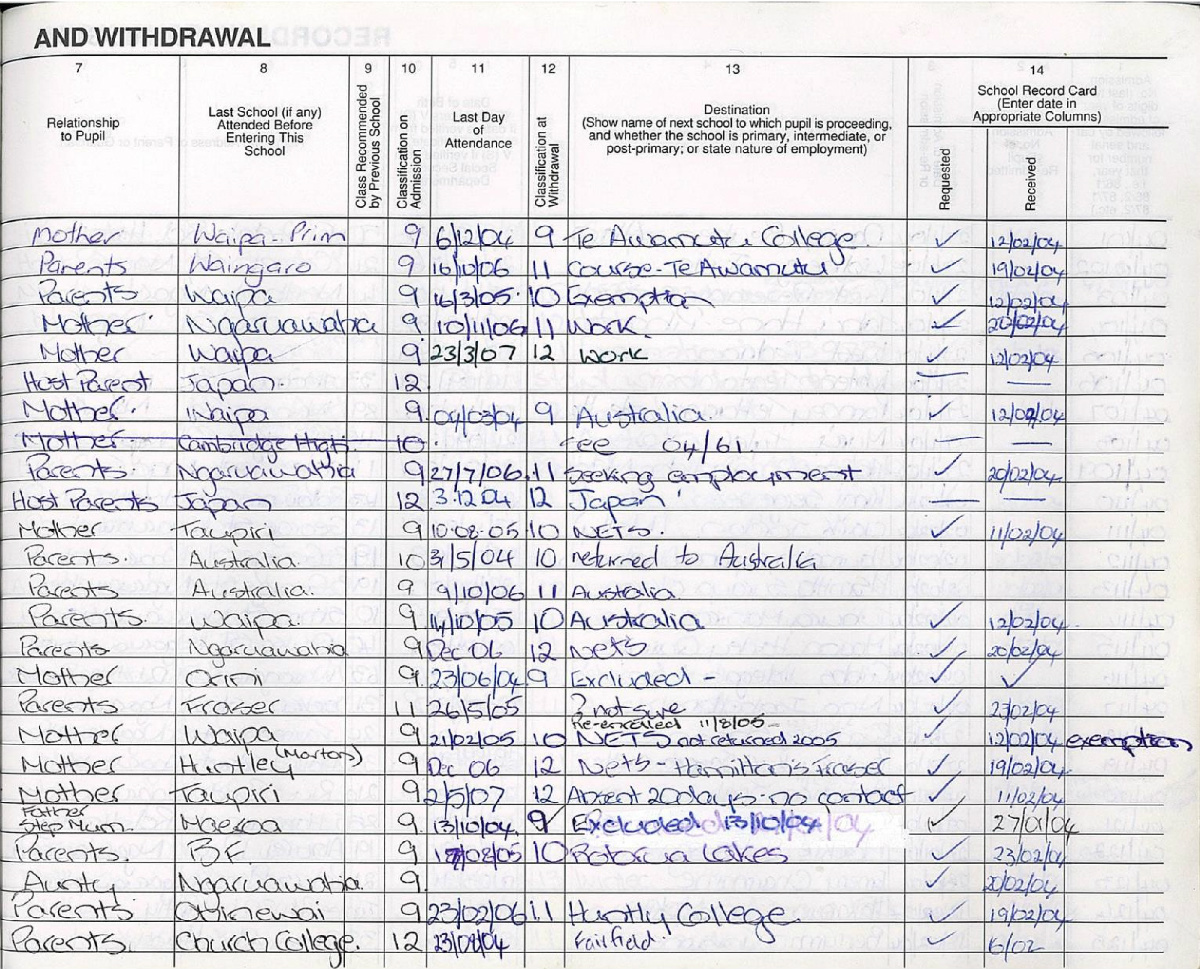 AND WITHDRAWAL
7 8 9 10 11 12 13 14
Relationship to Pupil
Last School (if any) Attended Before Entering This School
Class Recommended by Previous School
Classification on Admission
Last Day of Attendance
Classification at Withdrawal
Destination
(Show name of next school to which pupil is proceeding, and whether the school is primary, intermediate, or post-primary; or state nature of employment)
School Record Card
(Enter date in Appropriate Columns)
Requested
Received
Mother Waipa-Prim 9 6/12/04 9 Te Awamutu College ✓ 12/02/04
Parents Waingaro 9 16/10/06 11 Course-Te Awamutu ✓ 19/02/04
Parents Waipa 9 16/3/05 10 Exemption ✓ 12/02/04
Mother Ngaruawahia 9 10/11/06 11 Work ✓ 20/02/04
Mother Waipa 9 23/3/07 12 Work ✓ 12/02/04
Host Parent Japan 12 — —
Mother Waipa 9 04/03/04 9 Australia ✓ 12/02/04
Mother Cambridge High 10 see 04/61 — —
Parents Ngaruawahia 9 27/7/06 11 Seeking employment ✓ 20/02/04
Host Parents Japan 12 3.12.04 12 Japan — —
Mother Taupiri 9 10.08.05 10 NETS. ✓ 11/02/04
Parents Australia 10 31/5/04 10 returned to Australia
Parents Australia. 9 9/10/06 11 Australia
Parents Waipa 9 14/10/05 10 Australia ✓ 12/02/04
Parents Ngaruawahia 9 Dec 06 12 Nets ✓ 20/02/04
Mother Orini 9 23/06/04 9 Excluded - ✓ ✓
Parents Fraser 11 26/5/05 ? not sure ✓ 23/02/04
Re-enrolled 11/8/05 -
Mother Waipa 9 21/02/05 10 NETS not returned 2005 ✓ 12/02/04 exemption
Mother Huntley (Marton) 9 Dec 06 12 Nets - Hamilton's Fraser ✓ 19/02/04
Mother Taupiri 9 2/5/07 12 Absent 20 days - no contact ✓ 11/02/04
Father
Step Mum. Maeroa 9 13/10/04 9 Excluded 13/10/04 ✓ 27/01/04
Parents. BF 9 18/08/05 10 Rotorua Lakes ✓ 23/02/04
Aunty Ngaruawahia 9 ✓ 20/02/04
Parents Ohinewai 9 23/02/06 11 Huntly College ✓ 19/02/04
Parents. Church College. 12 Fairfield ✓ 16/02